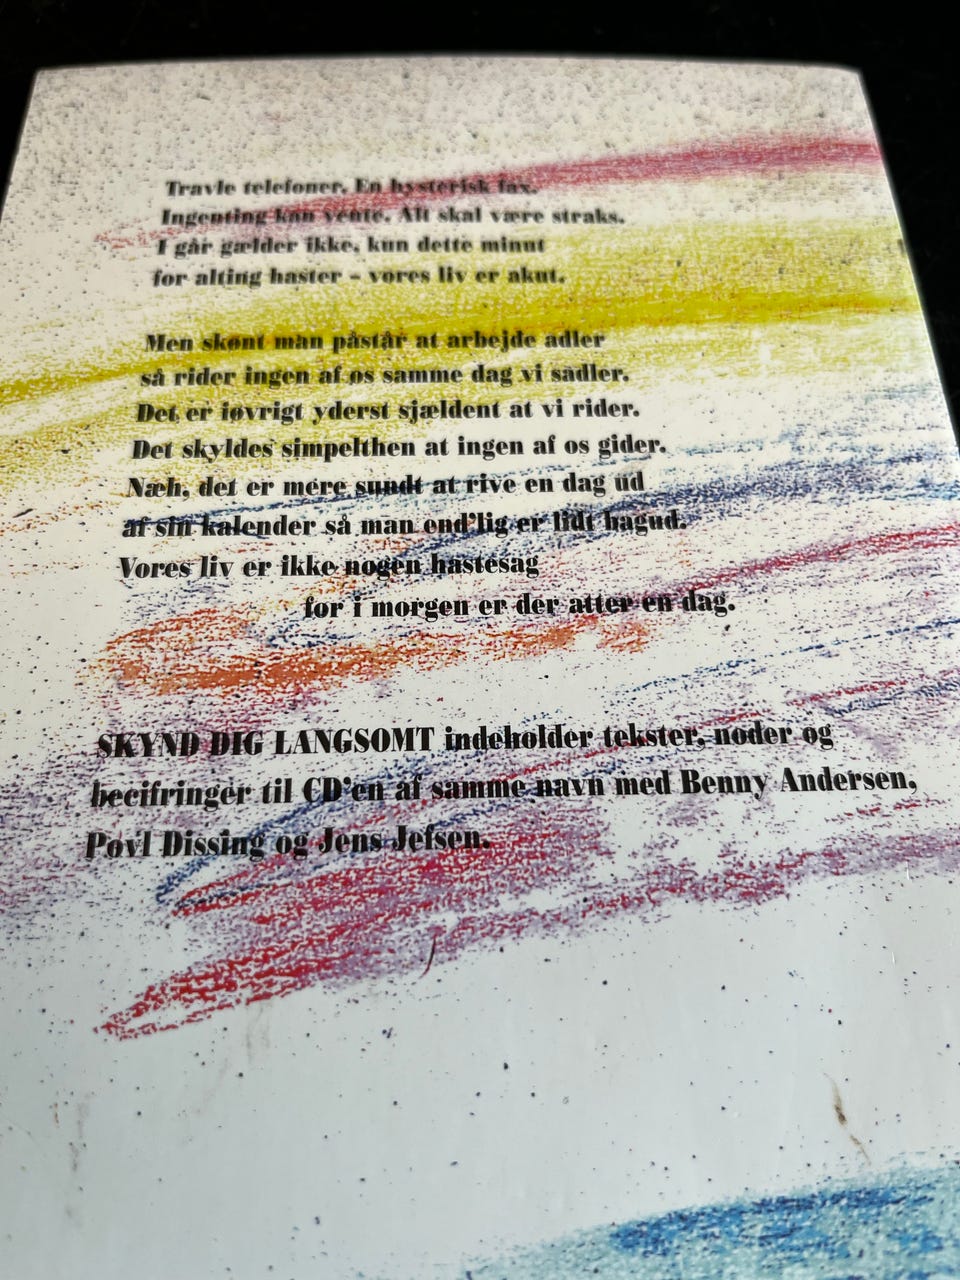 Travle telefoner. En hysterisk fax.
Ingenting kan vente. Alt skal være straks.
I går gælder ikke, kun dette minut
for alting haster – vores liv er akut.
Men skønt man påstår at arbejde adler
så rider ingen af os samme dag vi sadler.
Det er iøvrigt yderst sjældent at vi rider.
Det skyldes simpelthen at ingen af os gider.
Næh, det er mere sundt at rive en dag ud
af sin kalender så man end'lig er lidt bagud.
Vores liv er ikke nogen hastesag
for i morgen er der atter en dag.
SKYND DIG LANGSOMT indeholder tekster, noder og
becifringer til CD'en af samme navn med Benny Andersen,
Povl Dissing og Jens Jefsen.